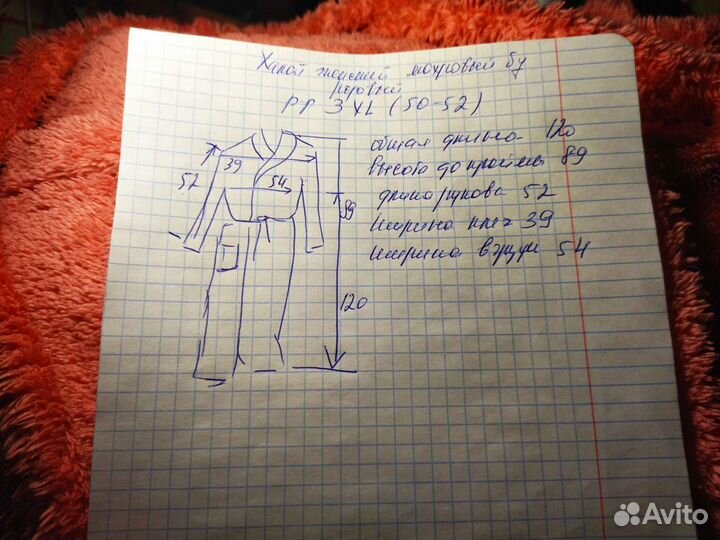 Халат женский махровый бу
розовый
р-р 3XL (50-52)
общая длина 120
высота до проймы 89
длина рукова 52
ширина плеч 39
ширина в груди 54
39
54
52
89
120
Avito